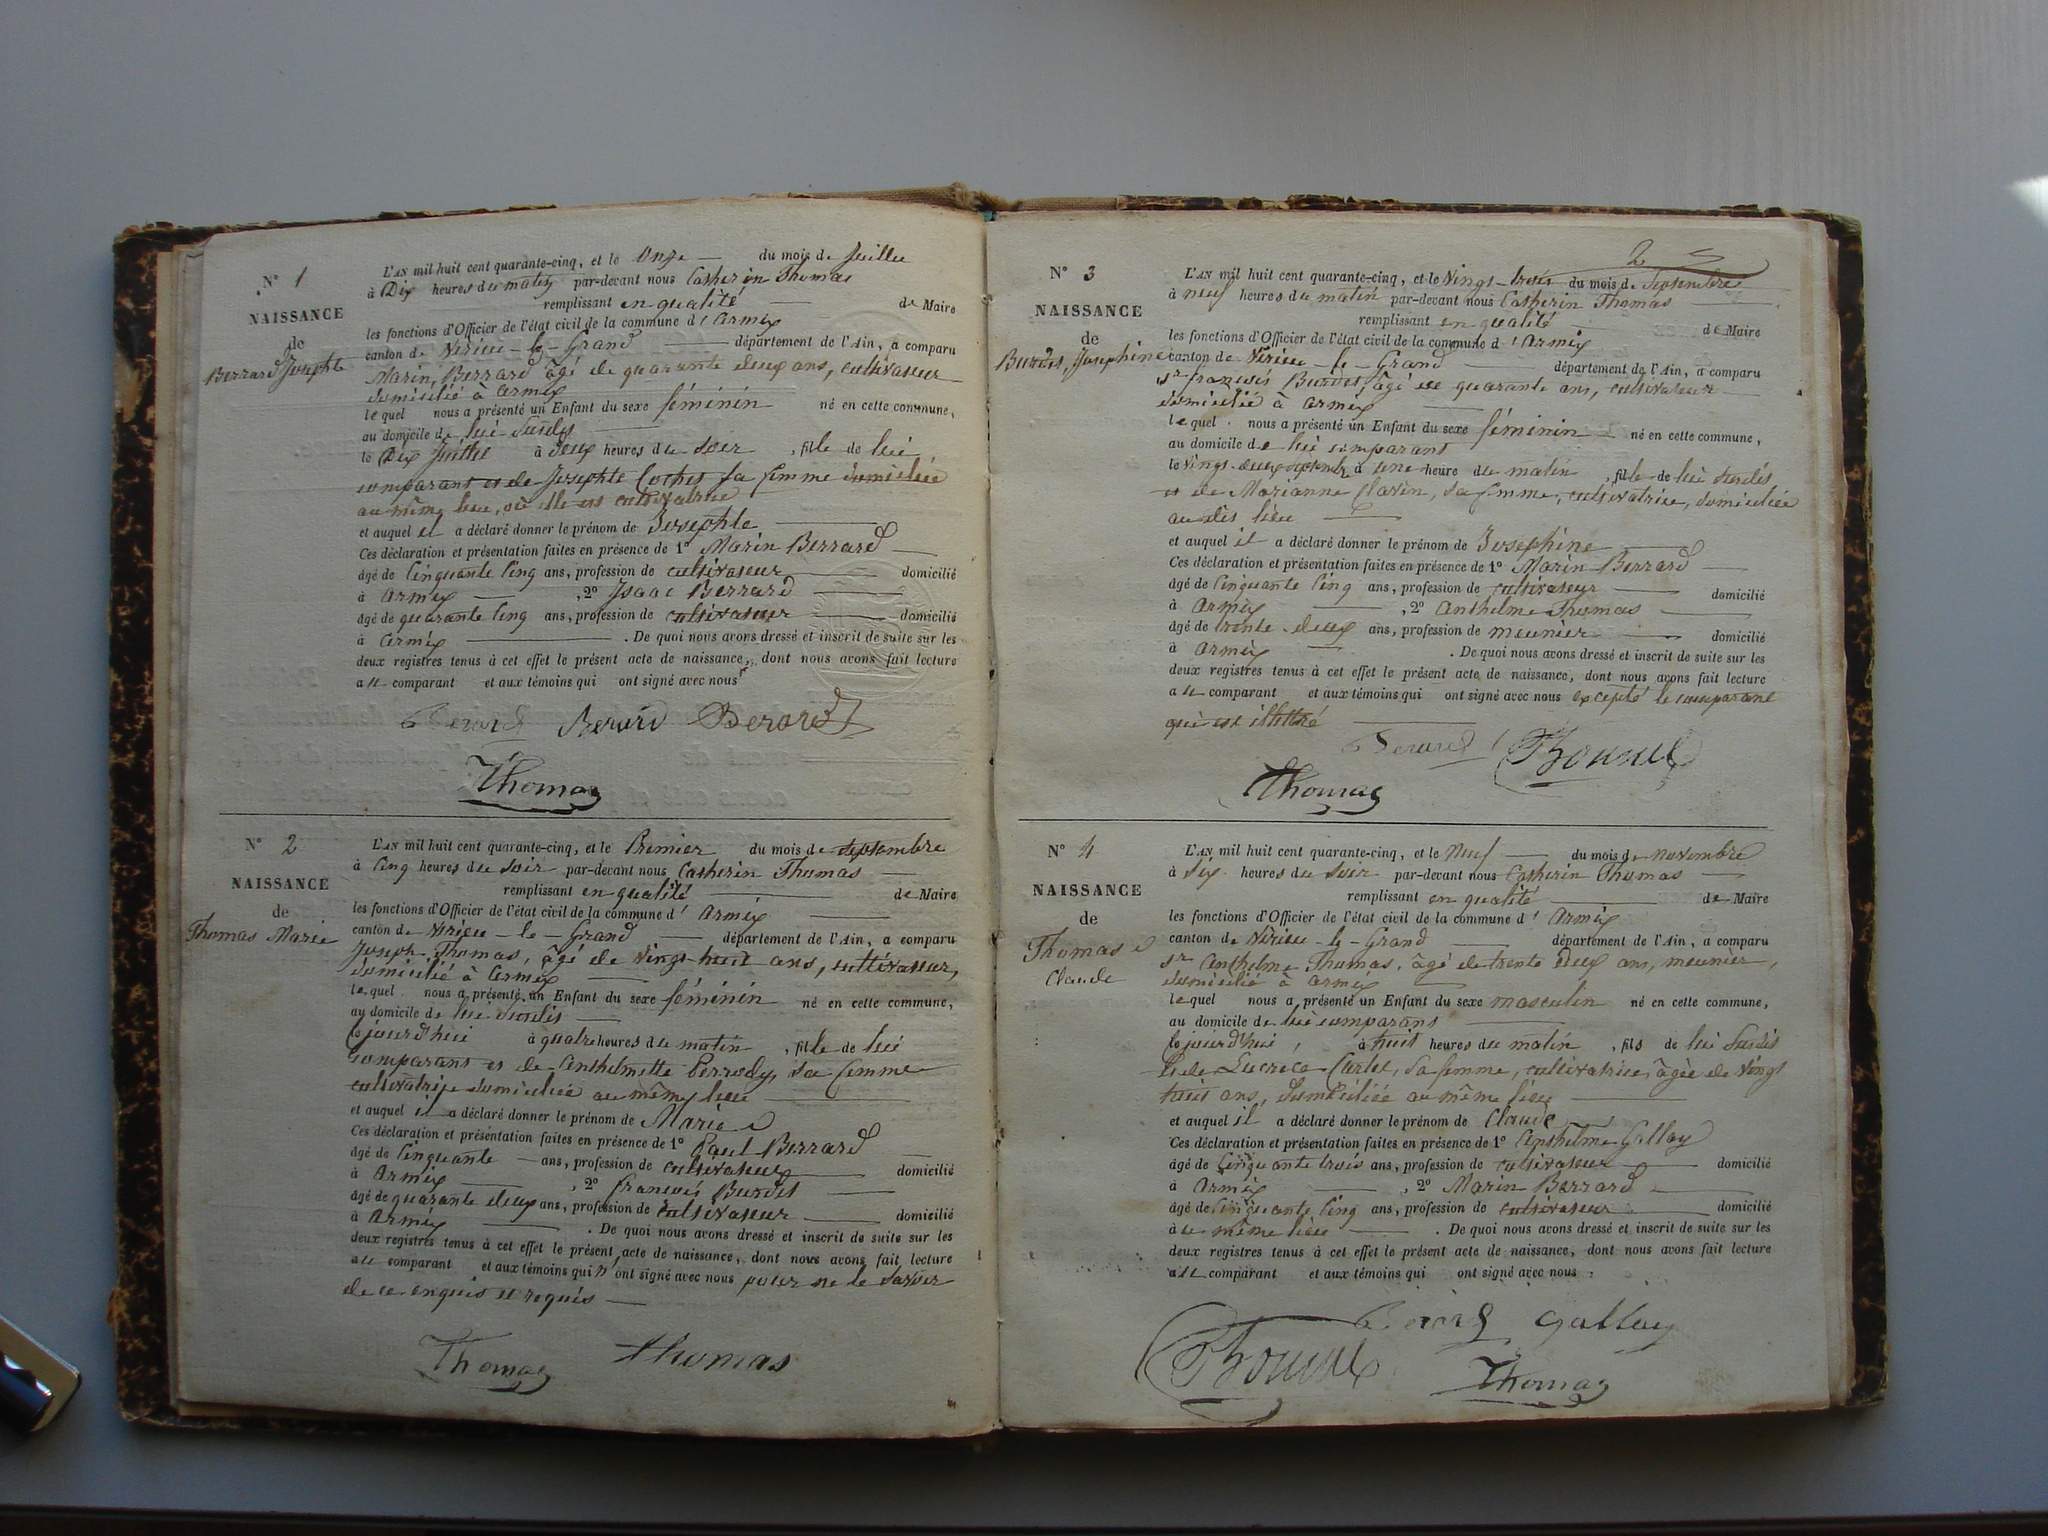 N° 1
NAISSANCE
de
Berrard Josephte
L'AN mil huit cent quarante-cinq, et le Onze du mois de Juillet
à Dix heures du matin par-devant nous Catherin Thomas
remplissant en qualité de Maire
les fonctions d'Officier de l'état civil de la commune d'Armix
canton de Virieu-le-Grand département de l'Ain, a comparu
Marin, Berrard âgé de quarante deux ans, cultivateur
domicilié à Armix
lequel nous a présenté un Enfant du sexe féminin né en cette commune,
au domicile de lui Susdit
le Dix Juillet à Deux heures du soir, fille de lui
comparant et de Josephte Cochet sa femme domiciliée
au même lieu, où elle est cultivatrice
et auquel il a déclaré donner le prénom de Josephte
Ces déclaration et présentation faites en présence de 1° Marin Berrard
âgé de Cinquante Cinq ans, profession de cultivateur domicilié
à Armix, 2° Isaac Berrard
âgé de quarante Cinq ans, profession de cultivateur domicilié
à Armix. De quoi nous avons dressé et inscrit de suite sur les
deux registres tenus à cet effet le présent acte de naissance, dont nous avons fait lecture
au comparant et aux témoins qui ont signé avec nous
Berard Berard Berard
Thomas
N° 2
NAISSANCE
de
Thomas Marie
L'AN mil huit cent quarante-cinq, et le Premier du mois de Septembre
à Cinq heures du Soir par-devant nous Catherin Thomas
remplissant en qualité de Maire
les fonctions d'Officier de l'état civil de la commune d'Armix
canton de Virieu-le-Grand département de l'Ain, a comparu
Joseph Thomas, âgé de vingt-huit ans, cultivateur,
domicilié à Armix
lequel nous a présenté un Enfant du sexe féminin né en cette commune,
au domicile de lui Susdit
cejourd'hui à quatre heures du matin, fille de lui
comparant et de Anthelmette Perrody, sa femme
cultivatrice domiciliée au même lieu
et auquel il a déclaré donner le prénom de Marie
Ces déclaration et présentation faites en présence de 1° Paul Berrard
âgé de Cinquante ans, profession de cultivateur domicilié
à Armix, 2° francois Burdet
âgé de quarante deux ans, profession de cultivateur domicilié
à Armix. De quoi nous avons dressé et inscrit de suite sur les
deux registres tenus à cet effet le présent acte de naissance, dont nous avons fait lecture
au comparant et aux témoins qui n'ont signé avec nous pour ne le savoir
de ce enquis et requis
Thomas thomas
2
N° 3
NAISSANCE
de
Burdet, Josephine
L'AN mil huit cent quarante-cinq, et le Vingt-trois du mois de Septembre
à neuf heures du matin par-devant nous Catherin Thomas
remplissant en qualité de Maire
les fonctions d'Officier de l'état civil de la commune d'Armix
canton de Virieu-le-Grand département de l'Ain, a comparu
Sr françois Burdet, âgé de quarante ans, cultivateur
domicilié à Armix
lequel nous a présenté un Enfant du sexe féminin né en cette commune,
au domicile de lui comparant
le vingt-deux Septembre à une heure du matin, fille de lui susdit
et de Marianne Clavin, sa femme, cultivatrice, domiciliée
au dit lieu
et auquel il a déclaré donner le prénom de Josephine
Ces déclaration et présentation faites en présence de 1° Marin Berrard
âgé de Cinquante Cinq ans, profession de cultivateur domicilié
à Armix, 2° Anthelme Thomas
âgé de trente-deux ans, profession de meunier domicilié
à Armix. De quoi nous avons dressé et inscrit de suite sur les
deux registres tenus à cet effet le présent acte de naissance, dont nous avons fait lecture
au comparant et aux témoins qui ont signé avec nous excepté le comparant
qui est illettré
Berard
Thomas
N° 4
NAISSANCE
de
Thomas
Claude
L'AN mil huit cent quarante-cinq, et le Neuf du mois de novembre
à Six heures du Soir par-devant nous Catherin Thomas
remplissant en qualité de Maire
les fonctions d'Officier de l'état civil de la commune d'Armix
canton de Virieu-le-Grand département de l'Ain, a comparu
Sr Anthelme Thomas, âgé de trente Deux ans, meunier,
domicilié à Armix
lequel nous a présenté un Enfant du sexe masculin né en cette commune,
au domicile de lui comparant
Cejourd'hui, à huit heures du matin, fils de lui Susdit
et de Lucrèce Carlet, sa femme, cultivatrice, âgée de vingt
huit ans, domiciliée au même lieu
et auquel il a déclaré donner le prénom de Claude
Ces déclaration et présentation faites en présence de 1° Anthelme Gallay
âgé de Cinquante trois ans, profession de cultivateur domicilié
à Armix, 2° Marin Berrard
âgé de Cinquante Cinq ans, profession de cultivateur domicilié
à ce même lieu. De quoi nous avons dressé et inscrit de suite sur les
deux registres tenus à cet effet le présent acte de naissance, dont nous avons fait lecture
au comparant et aux témoins qui ont signé avec nous.
Berard Gallay
Thomas